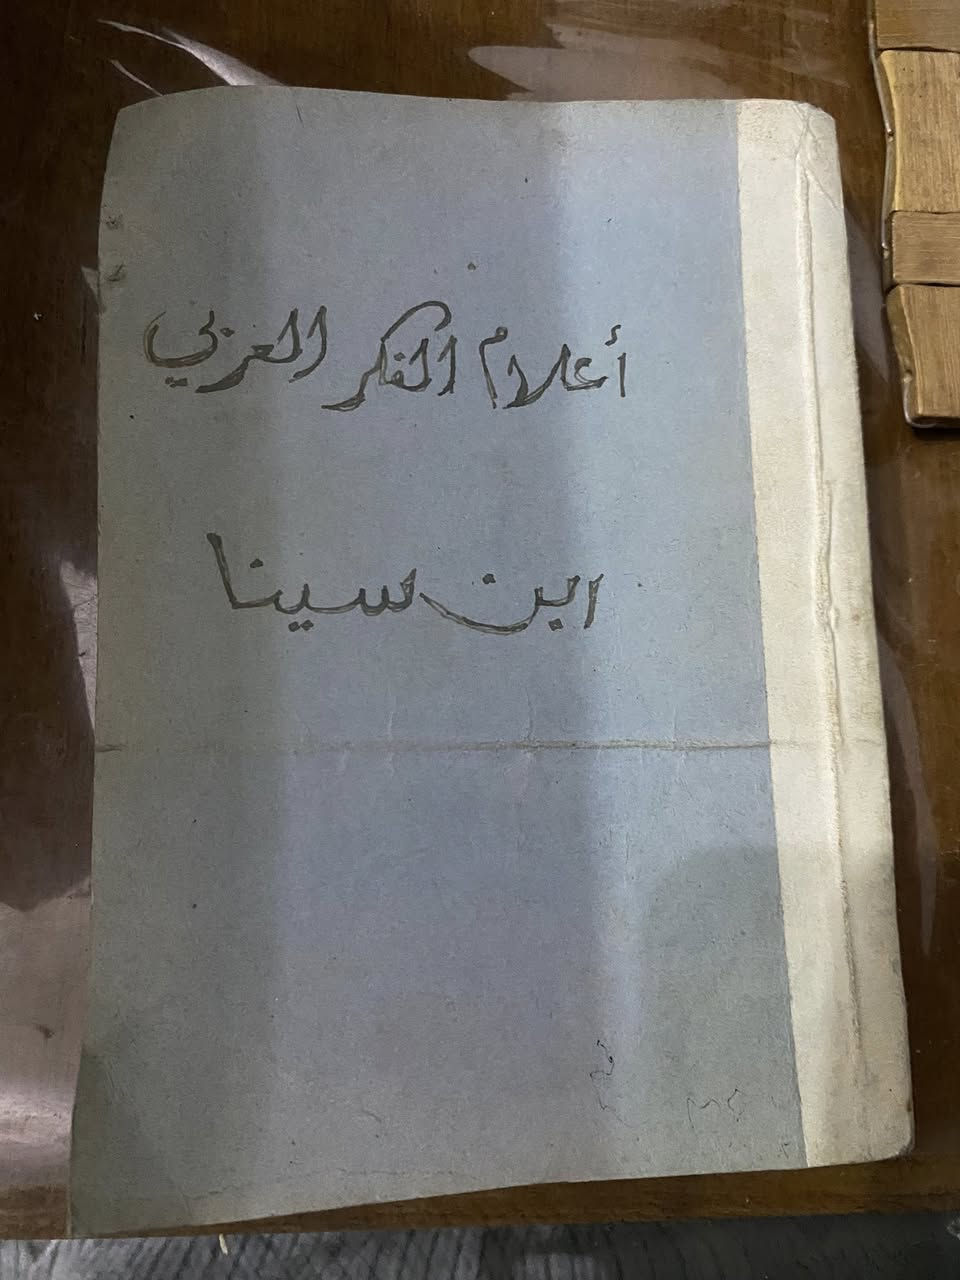 أعلام الفكر العربي
ابن سينا